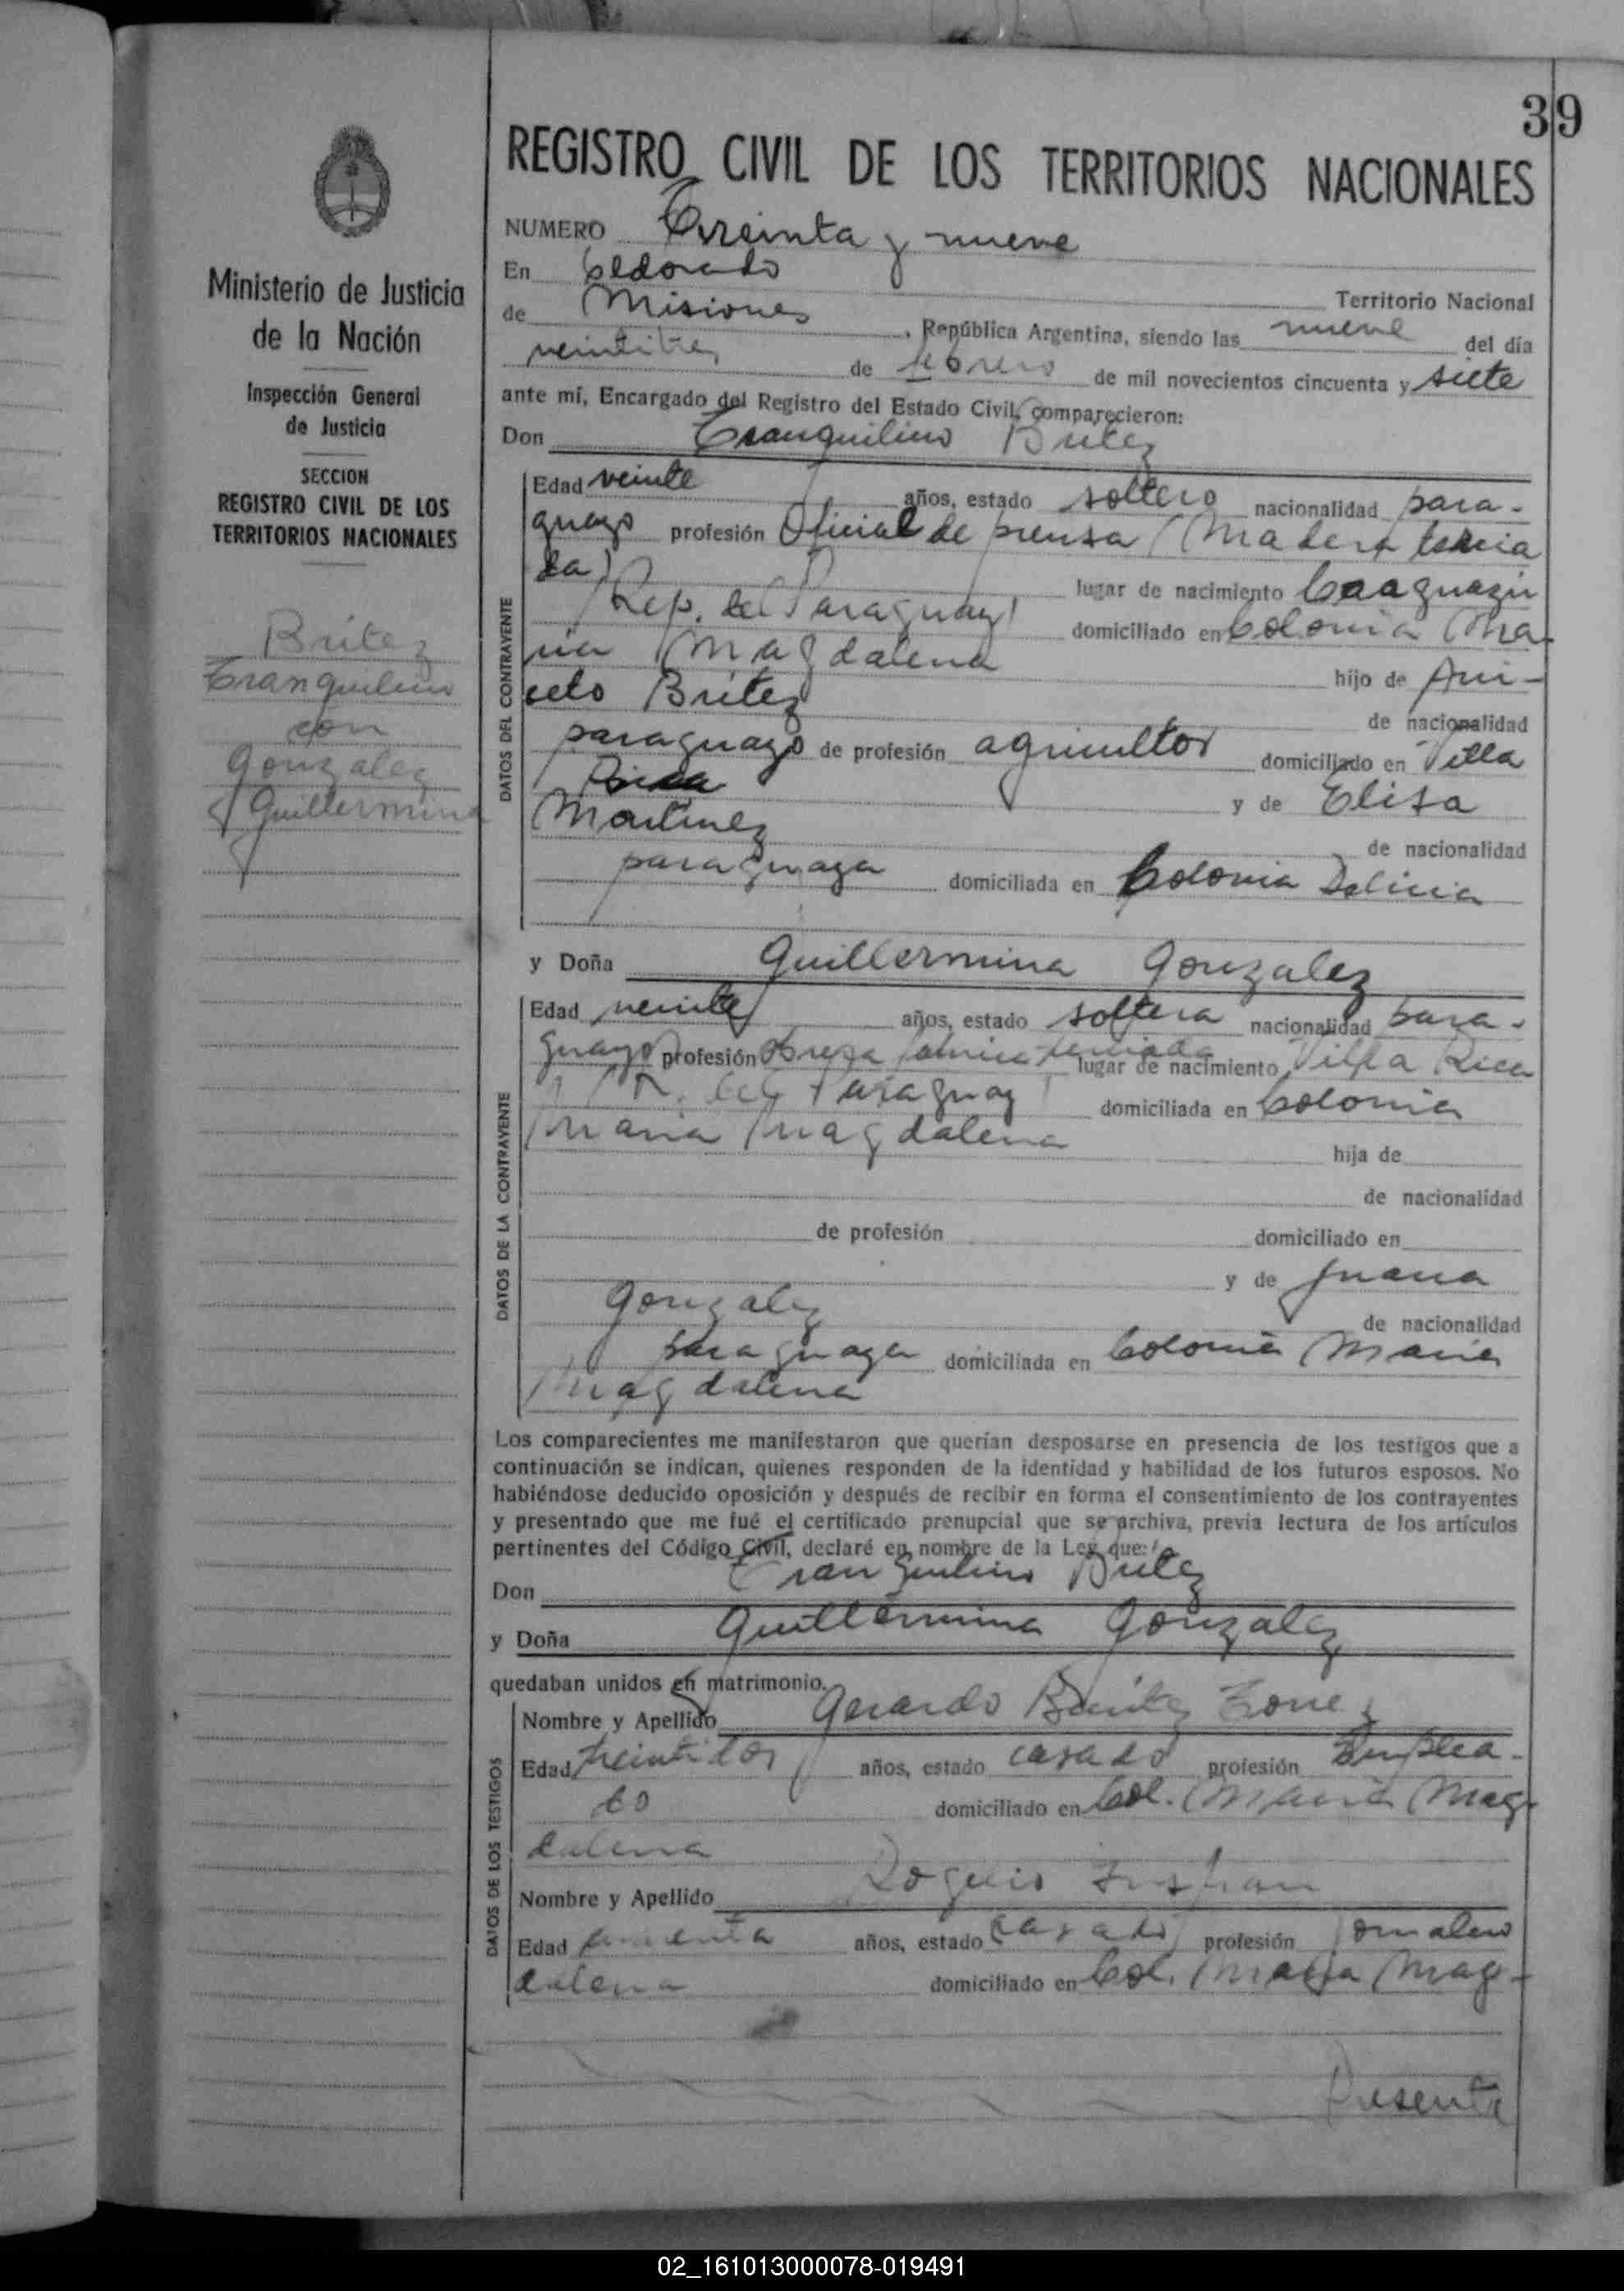 39
REGISTRO CIVIL DE LOS TERRITORIOS NACIONALES
Ministerio de Justicia
de la Nación
Inspección General
de Justicia
SECCION
REGISTRO CIVIL DE LOS
TERRITORIOS NACIONALES
Britez
Tranquilino
con
Gonzalez
Guillermina
NUMERO Treinta y nueve
En Eldorado
Territorio Nacional
de Misiones, República Argentina, siendo las nueve del día
veintitres de febrero de mil novecientos cincuenta y siete
ante mí, Encargado del Registro del Estado Civil, comparecieron:
Don Tranquilino Britez
DATOS DEL CONTRAYENTE
Edad veinte años, estado soltero nacionalidad para-
guayo profesión Oficial de prensa (Madera tercia
da) lugar de nacimiento Caaguazú
(Rep. del Paraguay) domiciliado en Colonia Ma-
ria Magdalena hijo de Ani-
ceto Britez de nacionalidad
paraguayo de profesión agricultor domiciliado en Villa
Rica y de Elisa
Martinez de nacionalidad
paraguaya domiciliada en Colonia Delicia
y Doña Guillermina Gonzalez
DATOS DE LA CONTRAYENTE
Edad veinte años, estado soltera nacionalidad para-
guaya profesión Obrera fabrica terciada lugar de nacimiento Villa Rica
R. del Paraguay domiciliada en Colonia
Maria Magdalena hija de
de nacionalidad
de profesión domiciliado en
y de Juana
Gonzalez de nacionalidad
paraguaya domiciliada en Colonia Maria
Magdalena
Los comparecientes me manifestaron que querían desposarse en presencia de los testigos que a
continuación se indican, quienes responden de la identidad y habilidad de los futuros esposos. No
habiéndose deducido oposición y después de recibir en forma el consentimiento de los contrayentes
y presentado que me fué el certificado prenupcial que se archiva, previa lectura de los artículos
pertinentes del Código Civil, declaré en nombre de la Ley que:
Don Tranquilino Britez
y Doña Guillermina Gonzalez
quedaban unidos en matrimonio.
DATOS DE LOS TESTIGOS
Nombre y Apellido Gerardo Benitez
Edad treintidos años, estado casado profesión Emplea-
do domiciliado en Col. Maria Mag-
dalena
Nombre y Apellido Rogelio
Edad años, estado casado profesión Jornalero
domiciliado en Col. Maria Mag-
dalena
Presente
02_161013000078-019491